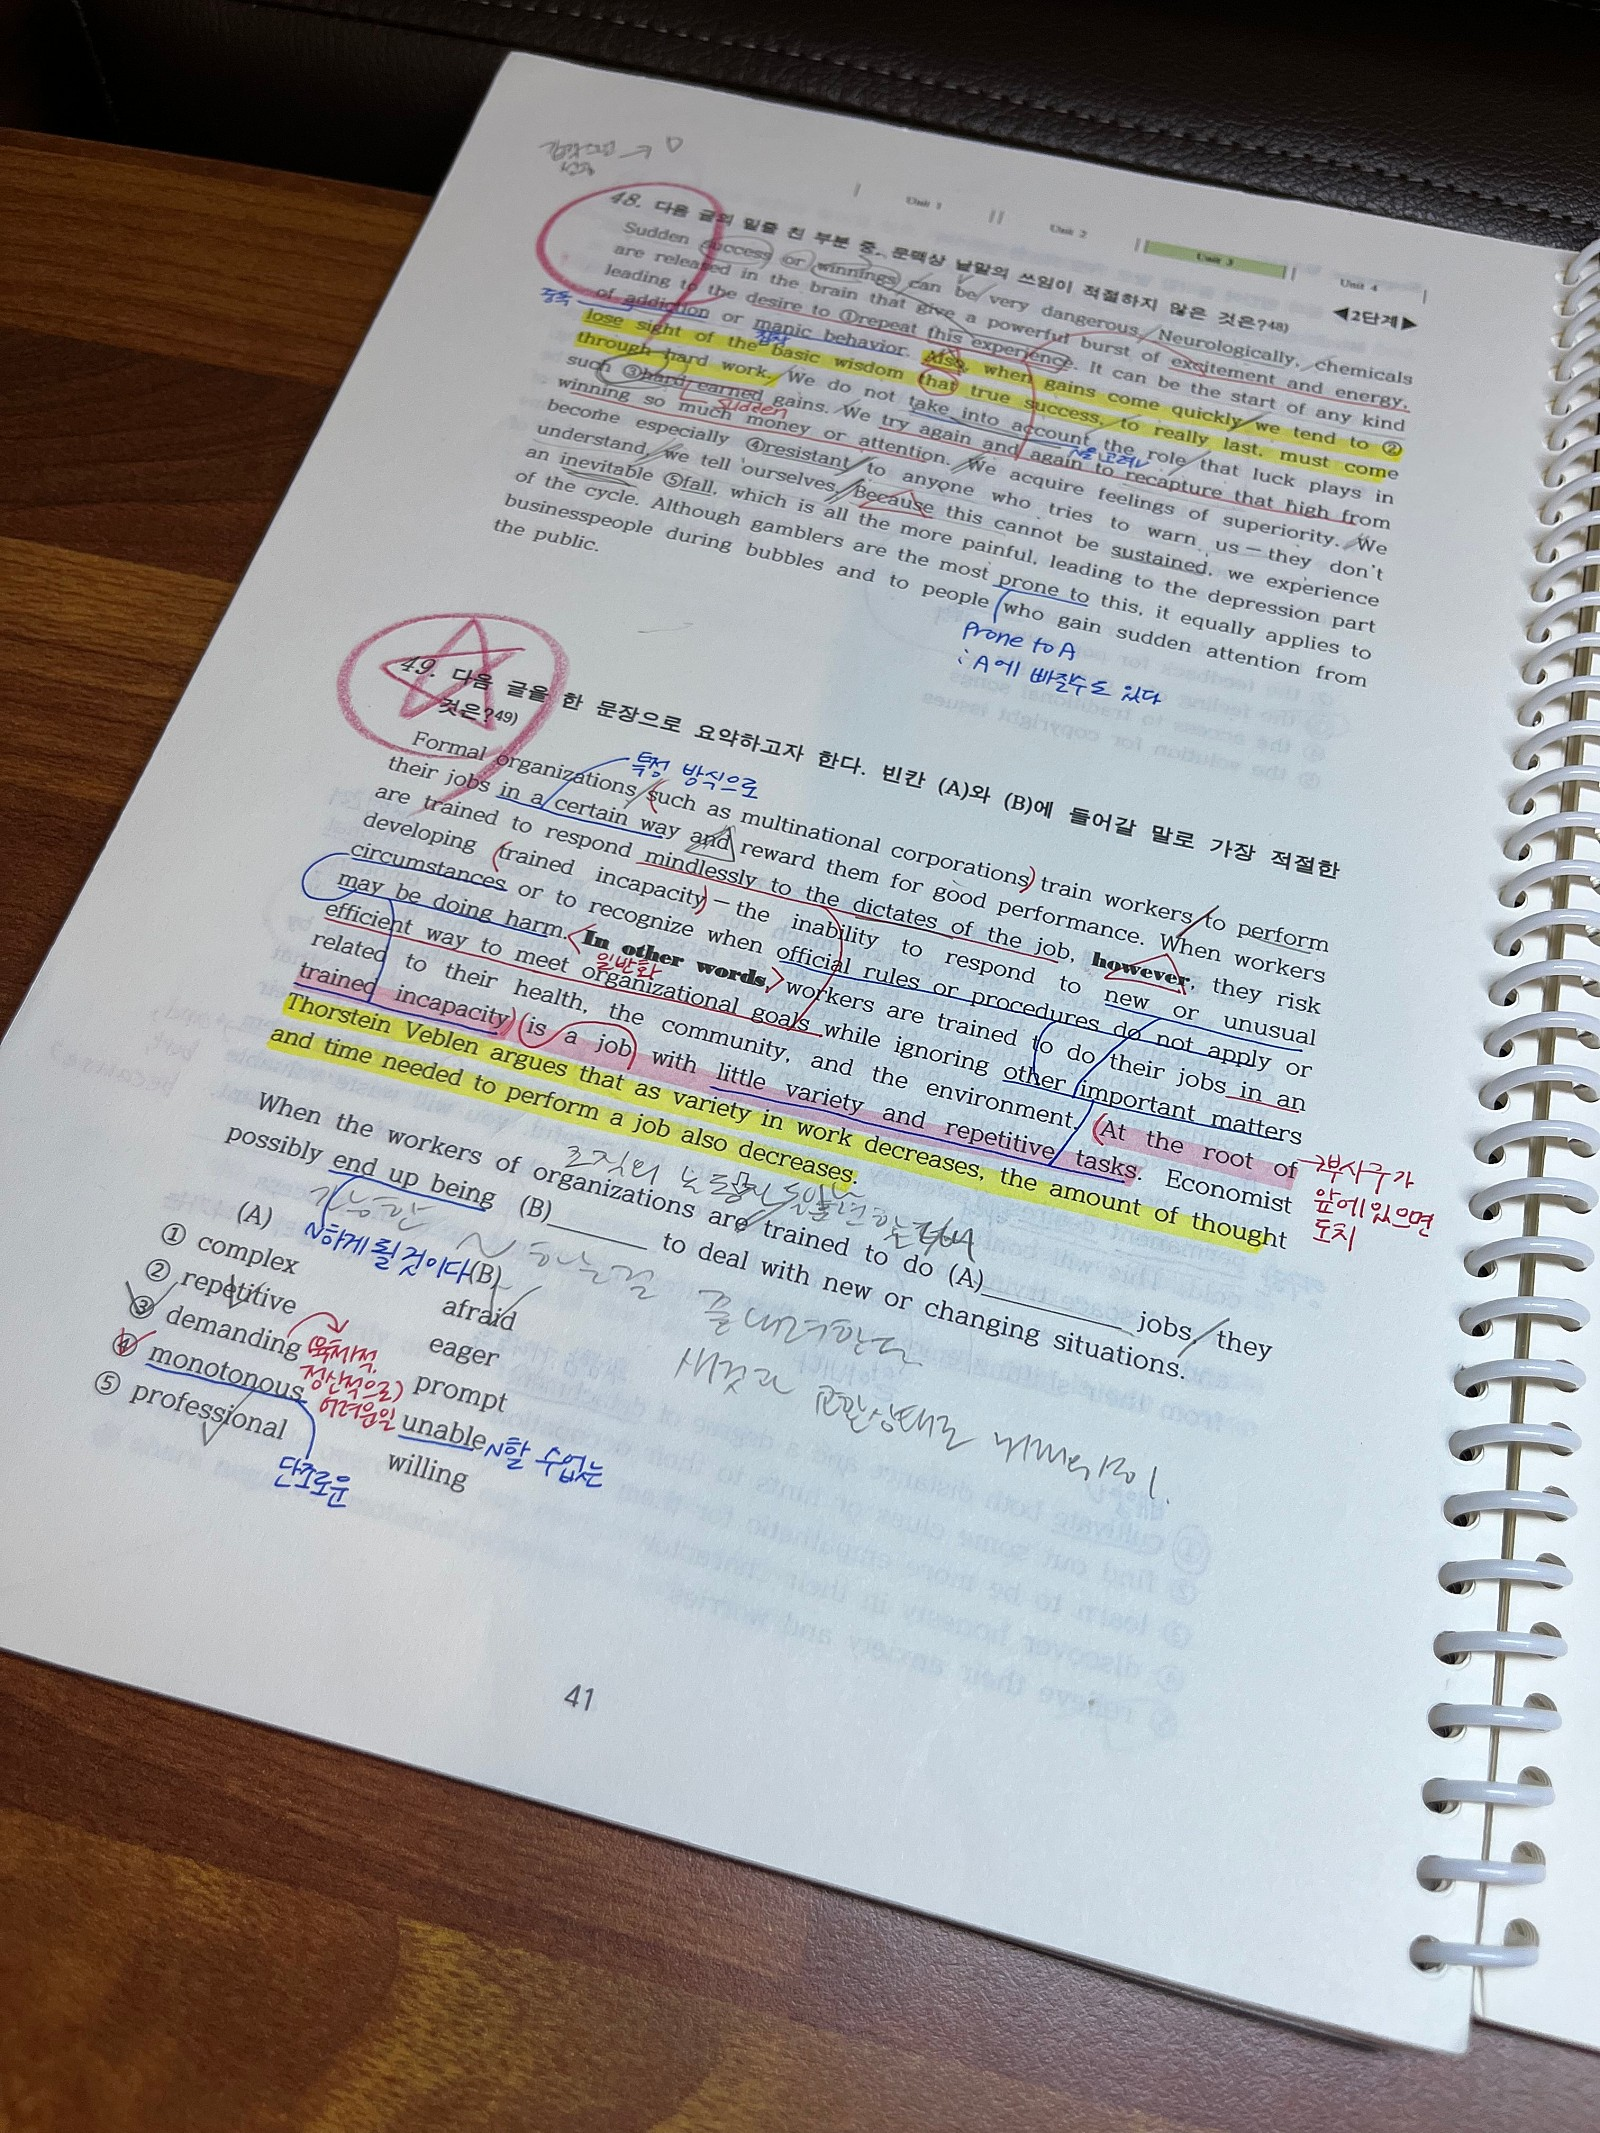 Unit 1
Unit 2
Unit 3
Unit 4
48. 다음 글의 밑줄 친 부분 중, 문맥상 낱말의 쓰임이 적절하지 않은 것은?48)
◀2단계▶
Sudden success or winnings can be very dangerous. Neurologically, chemicals
are released in the brain that give a powerful burst of excitement and energy,
leading to the desire to ①repeat this experience. It can be the start of any kind
중독
of addiction or manic behavior. Also, when gains come quickly we tend to ②
lose sight of the basic wisdom that true success, to really last, must come
through hard work. We do not take into account the role that luck plays in
sudden
~을 고려
such ③hard earned gains. We try again and again to recapture that high from
winning so much money or attention. We acquire feelings of superiority. We
become especially ④resistant to anyone who tries to warn us — they don't
understand, we tell ourselves. Because this cannot be sustained, we experience
an inevitable ⑤fall, which is all the more painful, leading to the depression part
of the cycle. Although gamblers are the most prone to this, it equally applies to
businesspeople during bubbles and to people who gain sudden attention from
the public.
Prone to A
: A에 빠질수도 있다
49. 다음 글을 한 문장으로 요약하고자 한다. 빈칸 (A)와 (B)에 들어갈 말로 가장 적절한
것은?49)
특정 방식으로
Formal organizations such as multinational corporations train workers to perform
their jobs in a certain way and reward them for good performance. When workers
are trained to respond mindlessly to the dictates of the job, however, they risk
developing trained incapacity — the inability to respond to new or unusual
circumstances or to recognize when official rules or procedures do not apply or
may be doing harm. In other words, workers are trained to do their jobs in an
일반화
efficient way to meet organizational goals while ignoring other important matters
related to their health, the community, and the environment. At the root of
trained incapacity is a job with little variety and repetitive tasks. Economist
Thorstein Veblen argues that as variety in work decreases, the amount of thought
and time needed to perform a job also decreases.
→부사구가
앞에 있으면
도치
When the workers of organizations are trained to do (A)________ jobs, they
possibly end up being (B)________ to deal with new or changing situations.
~하게 될 것이다
(A) (B)
① complex afraid
② repetitive eager
③ demanding prompt
육체적,
정신적으로)
어려운일
④ monotonous unable
~할 수 없는
⑤ professional willing
단조로운
41